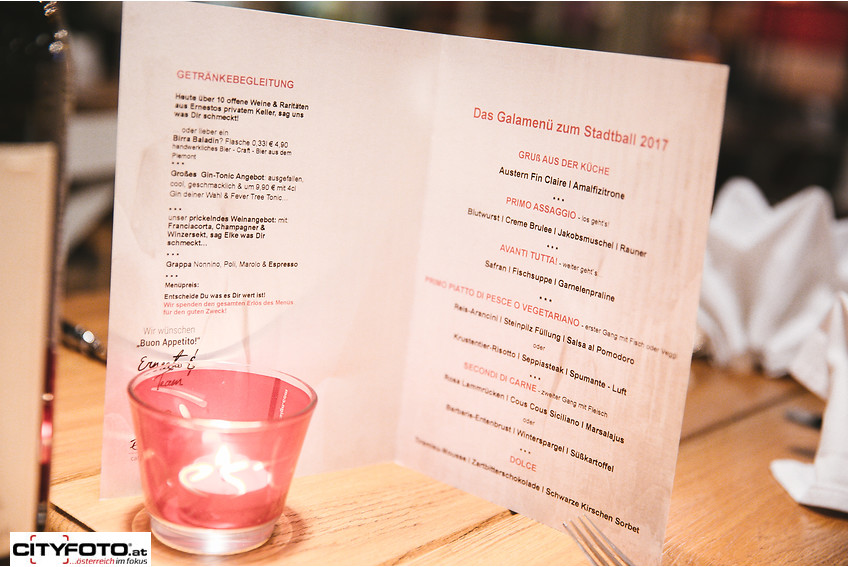 GETRÄNKEBEGLEITUNG
Heute über 10 offene Weine & Raritäten
aus Ernestos privatem Keller, sag uns
was Dir schmeckt!
oder lieber ein
Birra Baladin? Flasche 0,33l € 4,90
handwerkliches Bier - Craft - Bier aus dem
Piemont
***
Großes Gin-Tonic Angebot: ausgefallen,
cool, geschmacklich & um 9,90 € mit 4cl
Gin deiner Wahl & Fever Tree Tonic...
***
unser prickelndes Weinangebot: mit
Franciacorta, Champagner &
Winzersekt, sag Elke was Dir
schmeckt...
***
Grappa Nonnino, Poli, Marolo & Espresso
***
Menüpreis:
Entscheide Du was es Dir wert ist!
Wir spenden den gesamten Erlös des Menüs
für den guten Zweck!
Wir wünschen
„Buon Appetito!"
Ernesto &
Team
Das Galamenü zum Stadtball 2017
GRUß AUS DER KÜCHE
Austern Fin Claire I Amalfizitrone
***
PRIMO ASSAGGIO - los geht's!
Blutwurst I Creme Brulee I Jakobsmuschel I Rauner
***
AVANTI TUTTA! - weiter geht's
Safran I Fischsuppe I Garnelenpraline
***
PRIMO PIATTO DI PESCE O VEGETARIANO - erster Gang mit Fisch oder Veggi
Reis-Arancini I Steinpilz Füllung I Salsa al Pomodoro
oder
Krustentier-Risotto I Seppiasteak I Spumante - Luft
***
SECONDI DI CARNE - zweiter Gang mit Fleisch
Rosa Lammrücken I Cous Cous Siciliano I Marsalajus
oder
Barberie-Entenbrust I Winterspargel I Süßkartoffel
***
DOLCE
-Mousse I Zartbitterschokolade I Schwarze Kirschen Sorbet
CITYFOTO®.at
...österreich im fokus